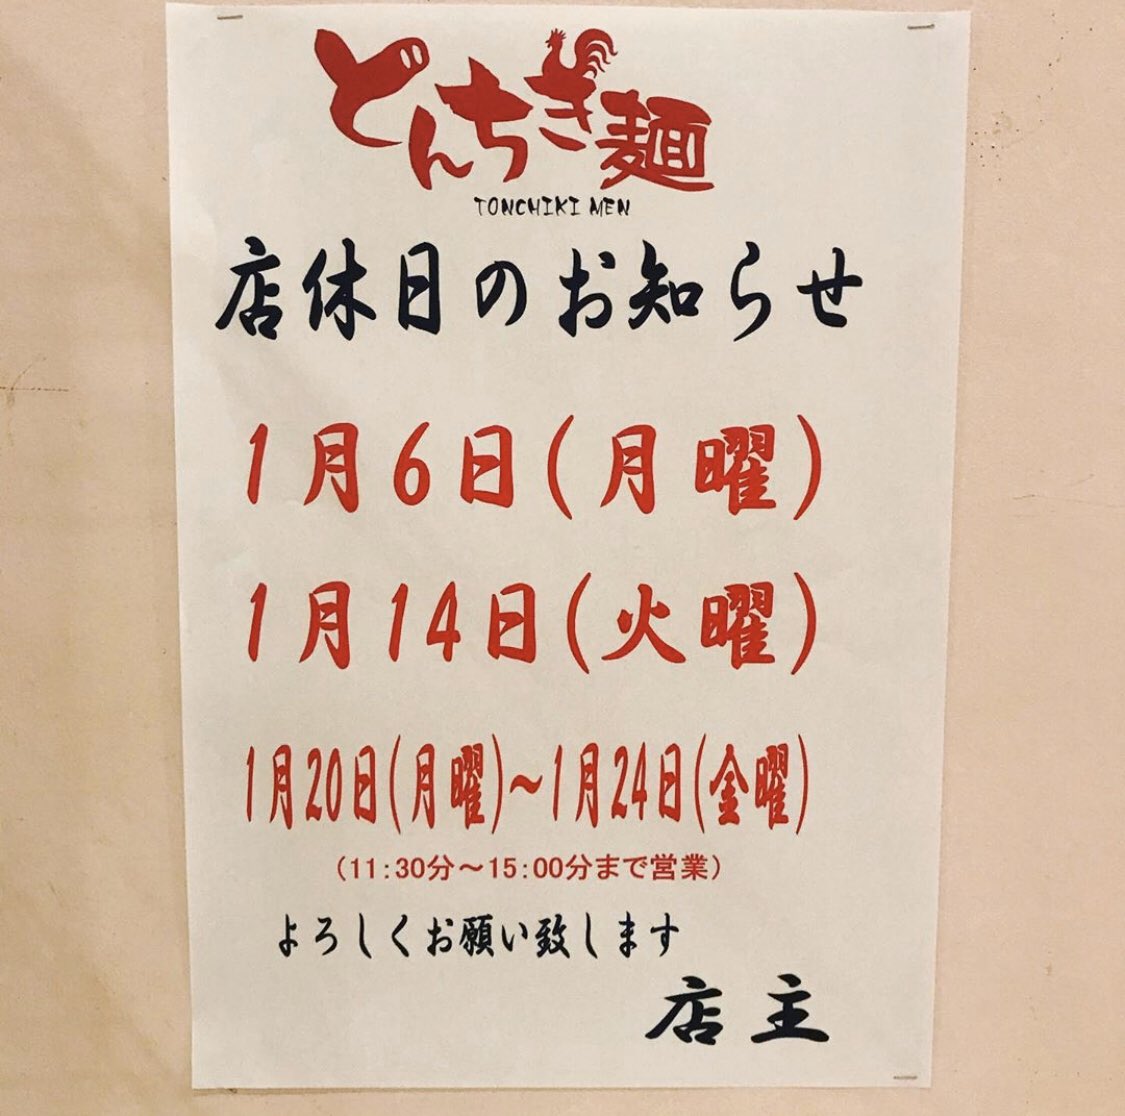 どんちき麺
TONCHIKI MEN
店休日のお知らせ
1月6日(月曜)
1月14日(火曜)
1月20日(月曜)~1月24日(金曜)
(11:30分~15:00分まで営業)
よろしくお願い致します
店主